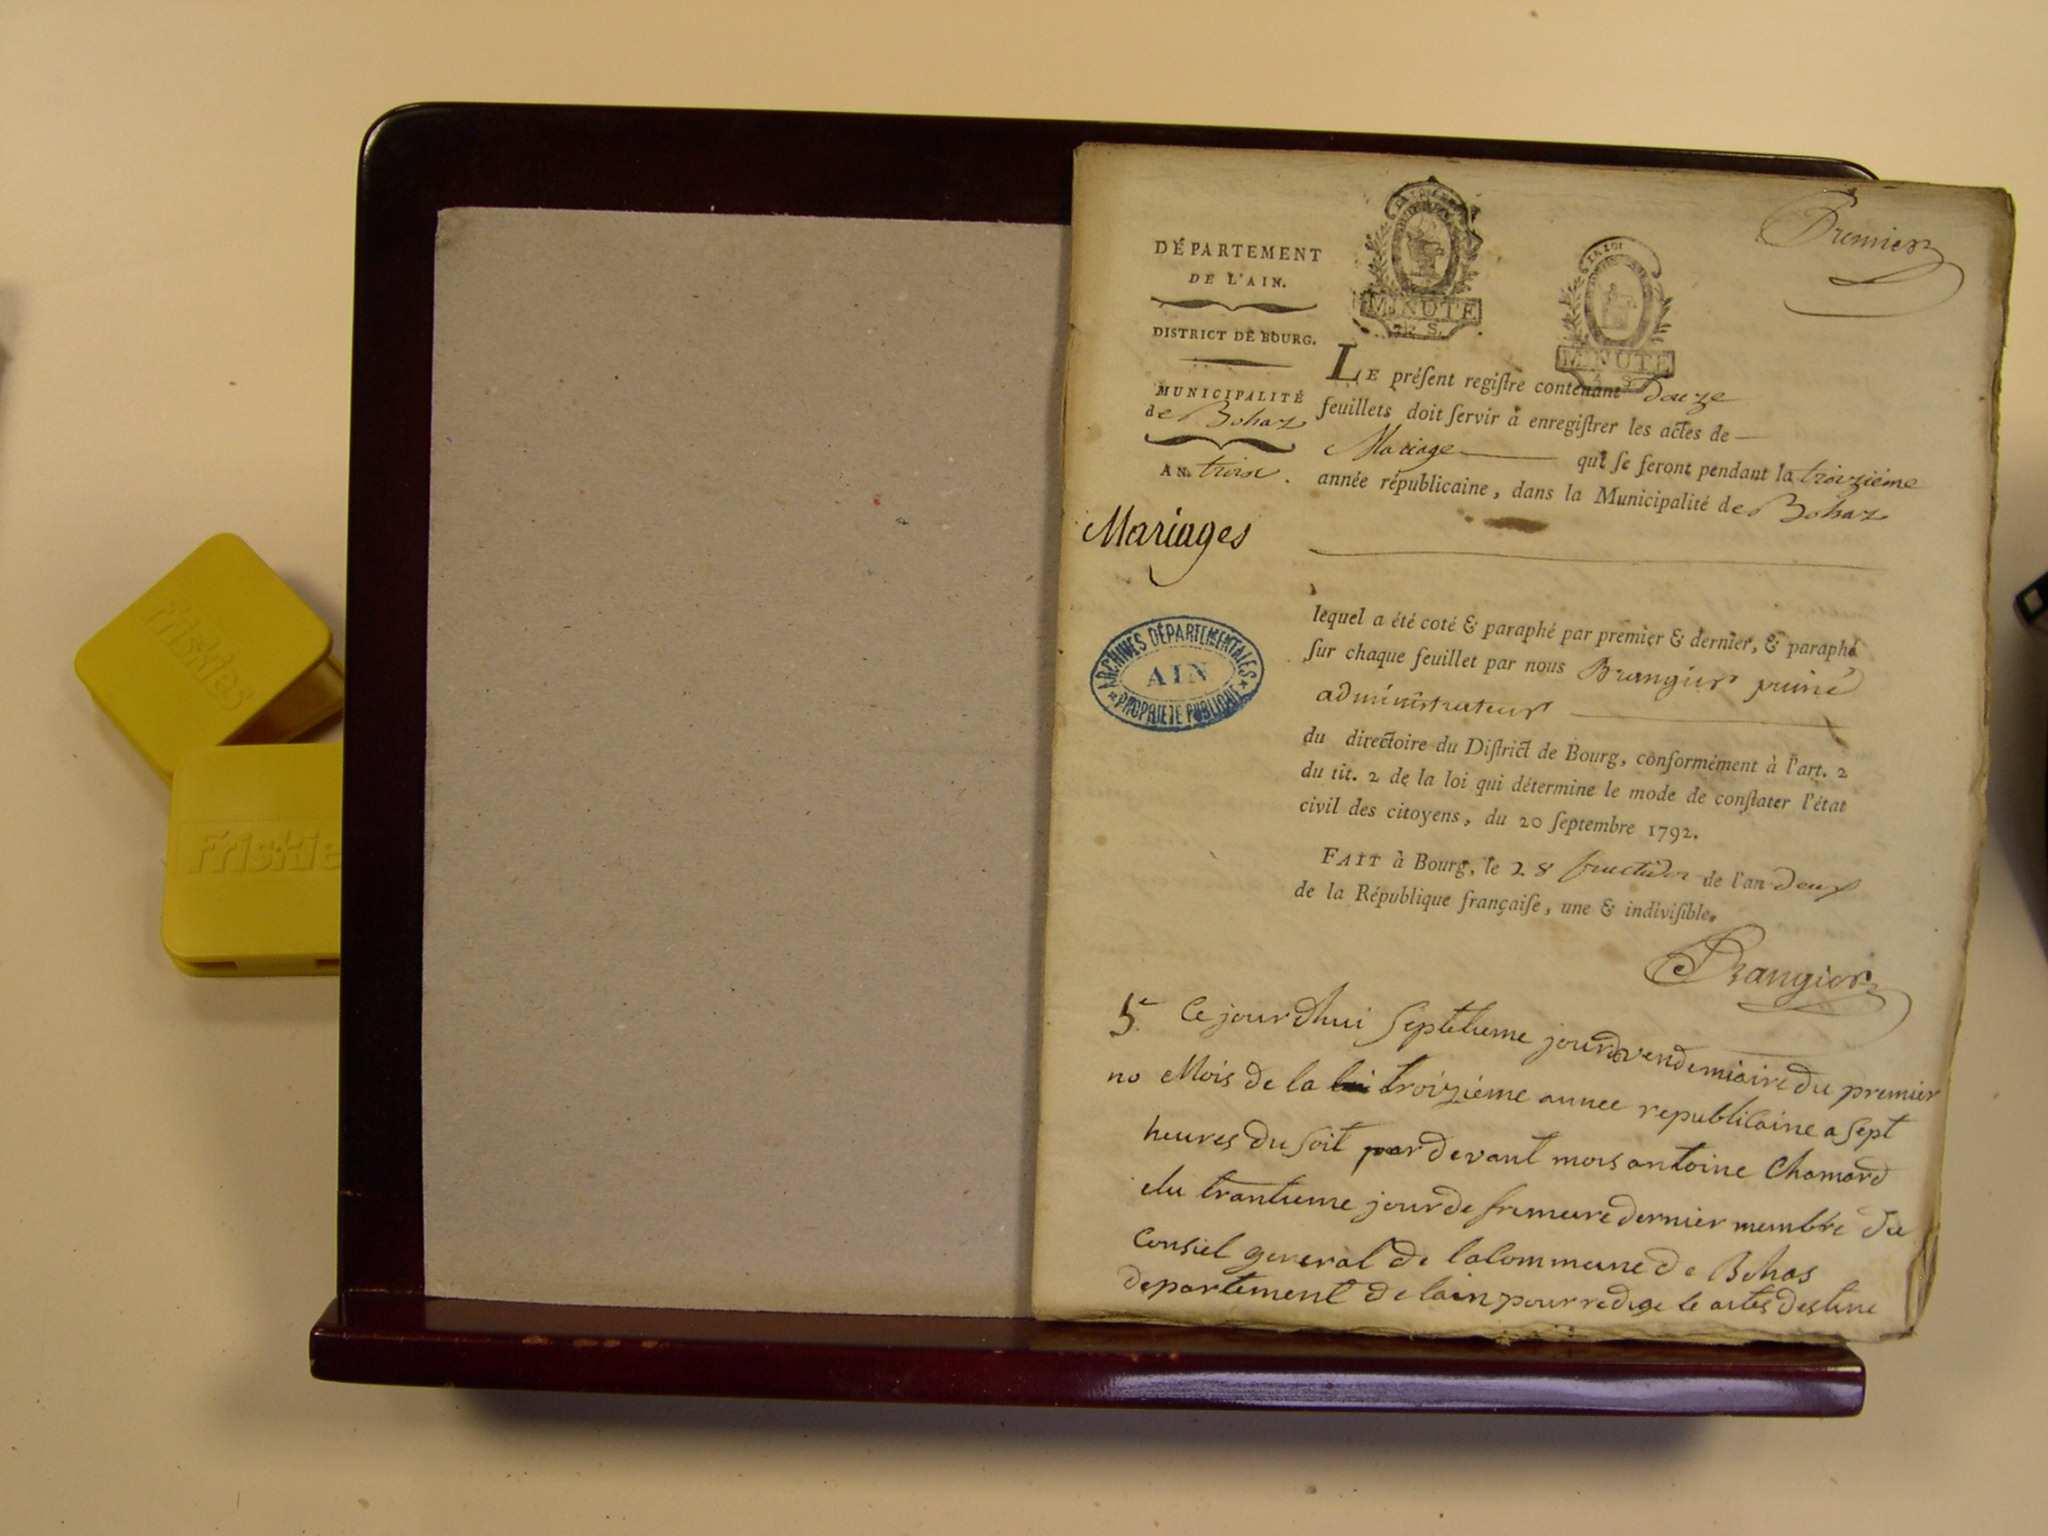 Friskies
Friskie
Premier
DÉPARTEMENT
DE L'AIN.
DISTRICT DE BOURG.
MUNICIPALITÉ
de Bohaz
AN. troix.
MINUTE
S.
LA LOI
MINUTE
S
LE préſent regiſtre contenant douze
feuillets doit ſervir à enregiſtrer les actes de —
Mariage — qui ſe feront pendant la troiziéme
année républicaine, dans la Municipalité de Bohaz
Mariages
ARCHIVES DÉPARTEMENTALES
AIN
* PROPRIÉTÉ PUBLIQUE *
lequel a été coté & paraphé par premier & dernier, & paraphé
ſur chaque feuillet par nous Brangier puiné
administrateur
du directoire du Diſtrict de Bourg, conformément à l'art. 2
du tit. 2 de la loi qui détermine le mode de conſtater l'état
civil des citoyens, du 20 ſeptembre 1792.
FAIT à Bourg, le 28 fructidor de l'an deux
de la République françaiſe, une & indiviſible.
Brangier
Ce jourdhui septtieme jour de vendemiaire du premier
no Mois de la troizieme annee republicaine a sept
heures du soit par devant mois antoine Chamard
elu trantieme jour de frimeire dernier membre du
Consiel general de la Commune de Bohas
departement de lain pour redige le actes destine